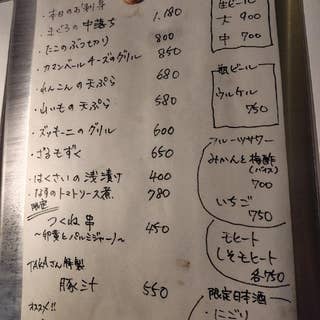 ・本日のお刺身 1,180
・まぐろの中落ち
・たこのぶつ切り 800
・カマンベールチーズのグリル 850
・れんこんの天ぷら 680
・山いもの天ぷら 580
・ズッキーニのグリル 600
・ざるもずく 650
・はくさいの浅漬け 400
・なすのトマトソース煮 780
限定
つくね串 450
〜卵黄とパルミジャーノ〜
TAKAさん特製
豚汁 550
オススメ!!
生ビール
大 900
中 700
瓶ビール
ウルケル
750
フルーツサワー
みかんと梅酢
(バイス)
700
いちご
750
モヒート
しそモヒート
各750
限定日本酒
・にごり